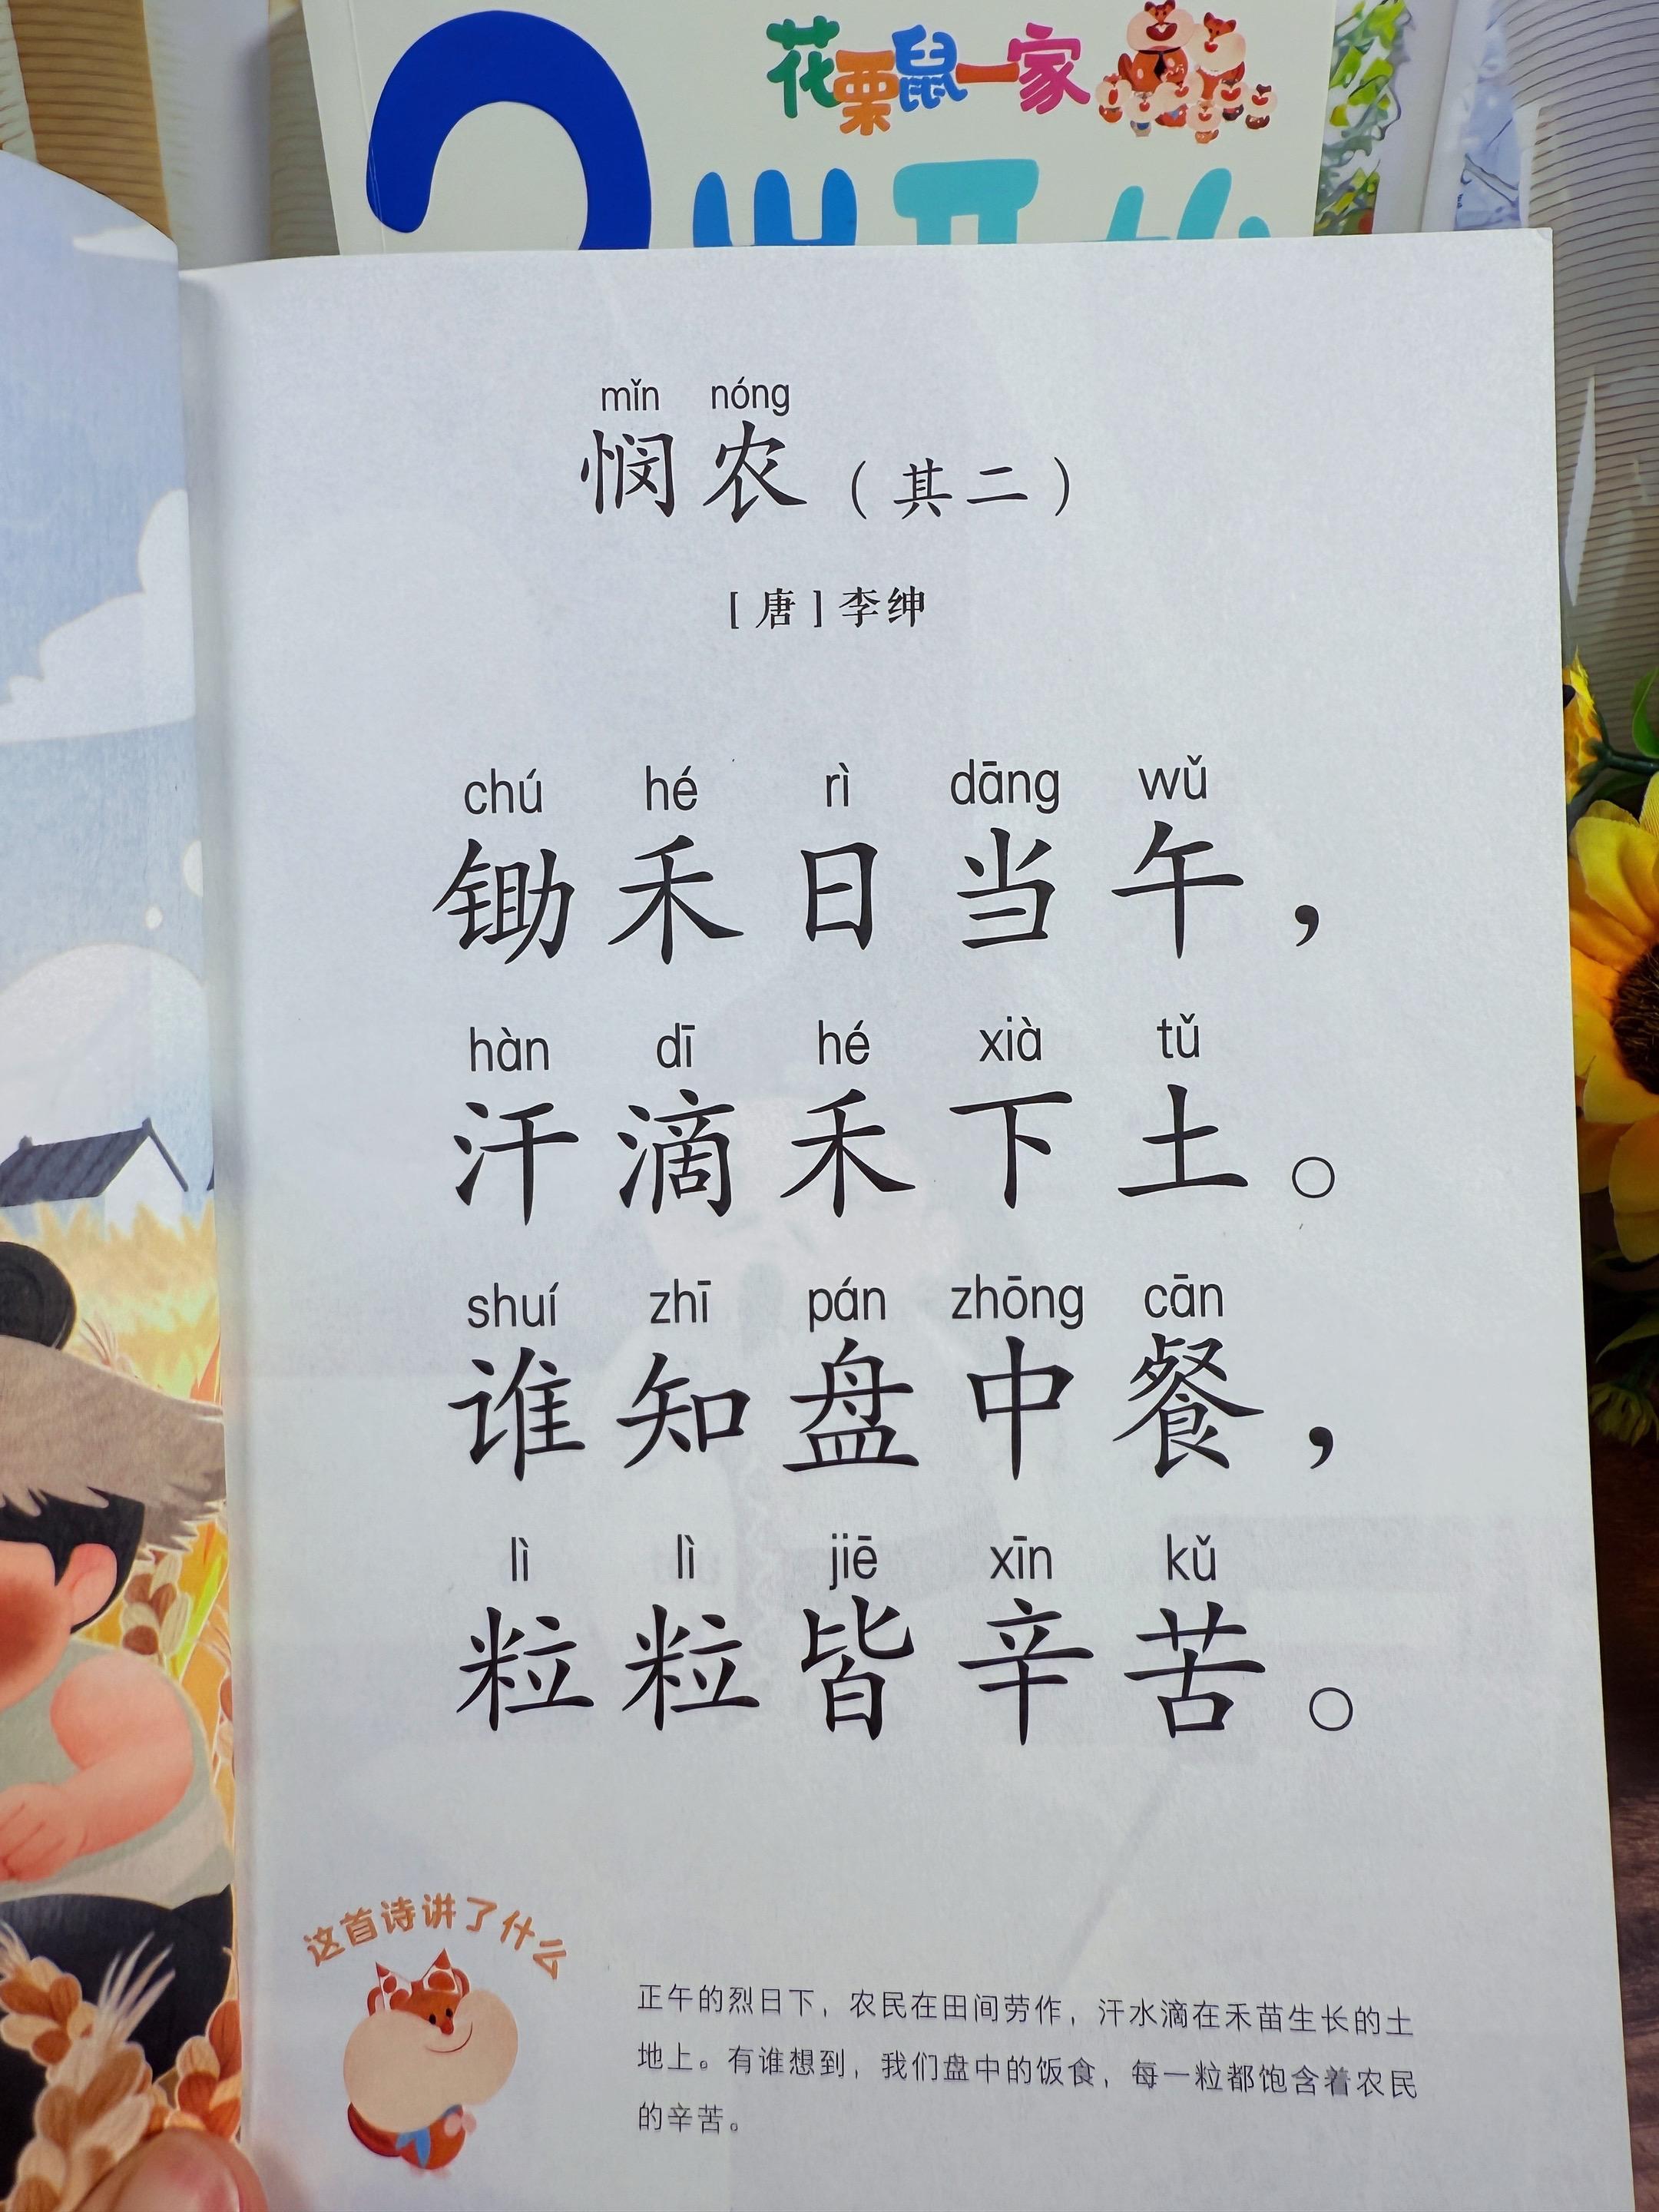 花栗鼠一家
mǐn nóng
悯农（其二）
［唐］李绅
chú hé rì dāng wǔ
锄禾日当午，
hàn dī hé xià tǔ
汗滴禾下土。
shuí zhī pán zhōng cān
谁知盘中餐，
lì lì jiē xīn kǔ
粒粒皆辛苦。
这首诗讲了什么
正午的烈日下，农民在田间劳作，汗水滴在禾苗生长的土
地上。有谁想到，我们盘中的饭食，每一粒都饱含着农民
的辛苦。